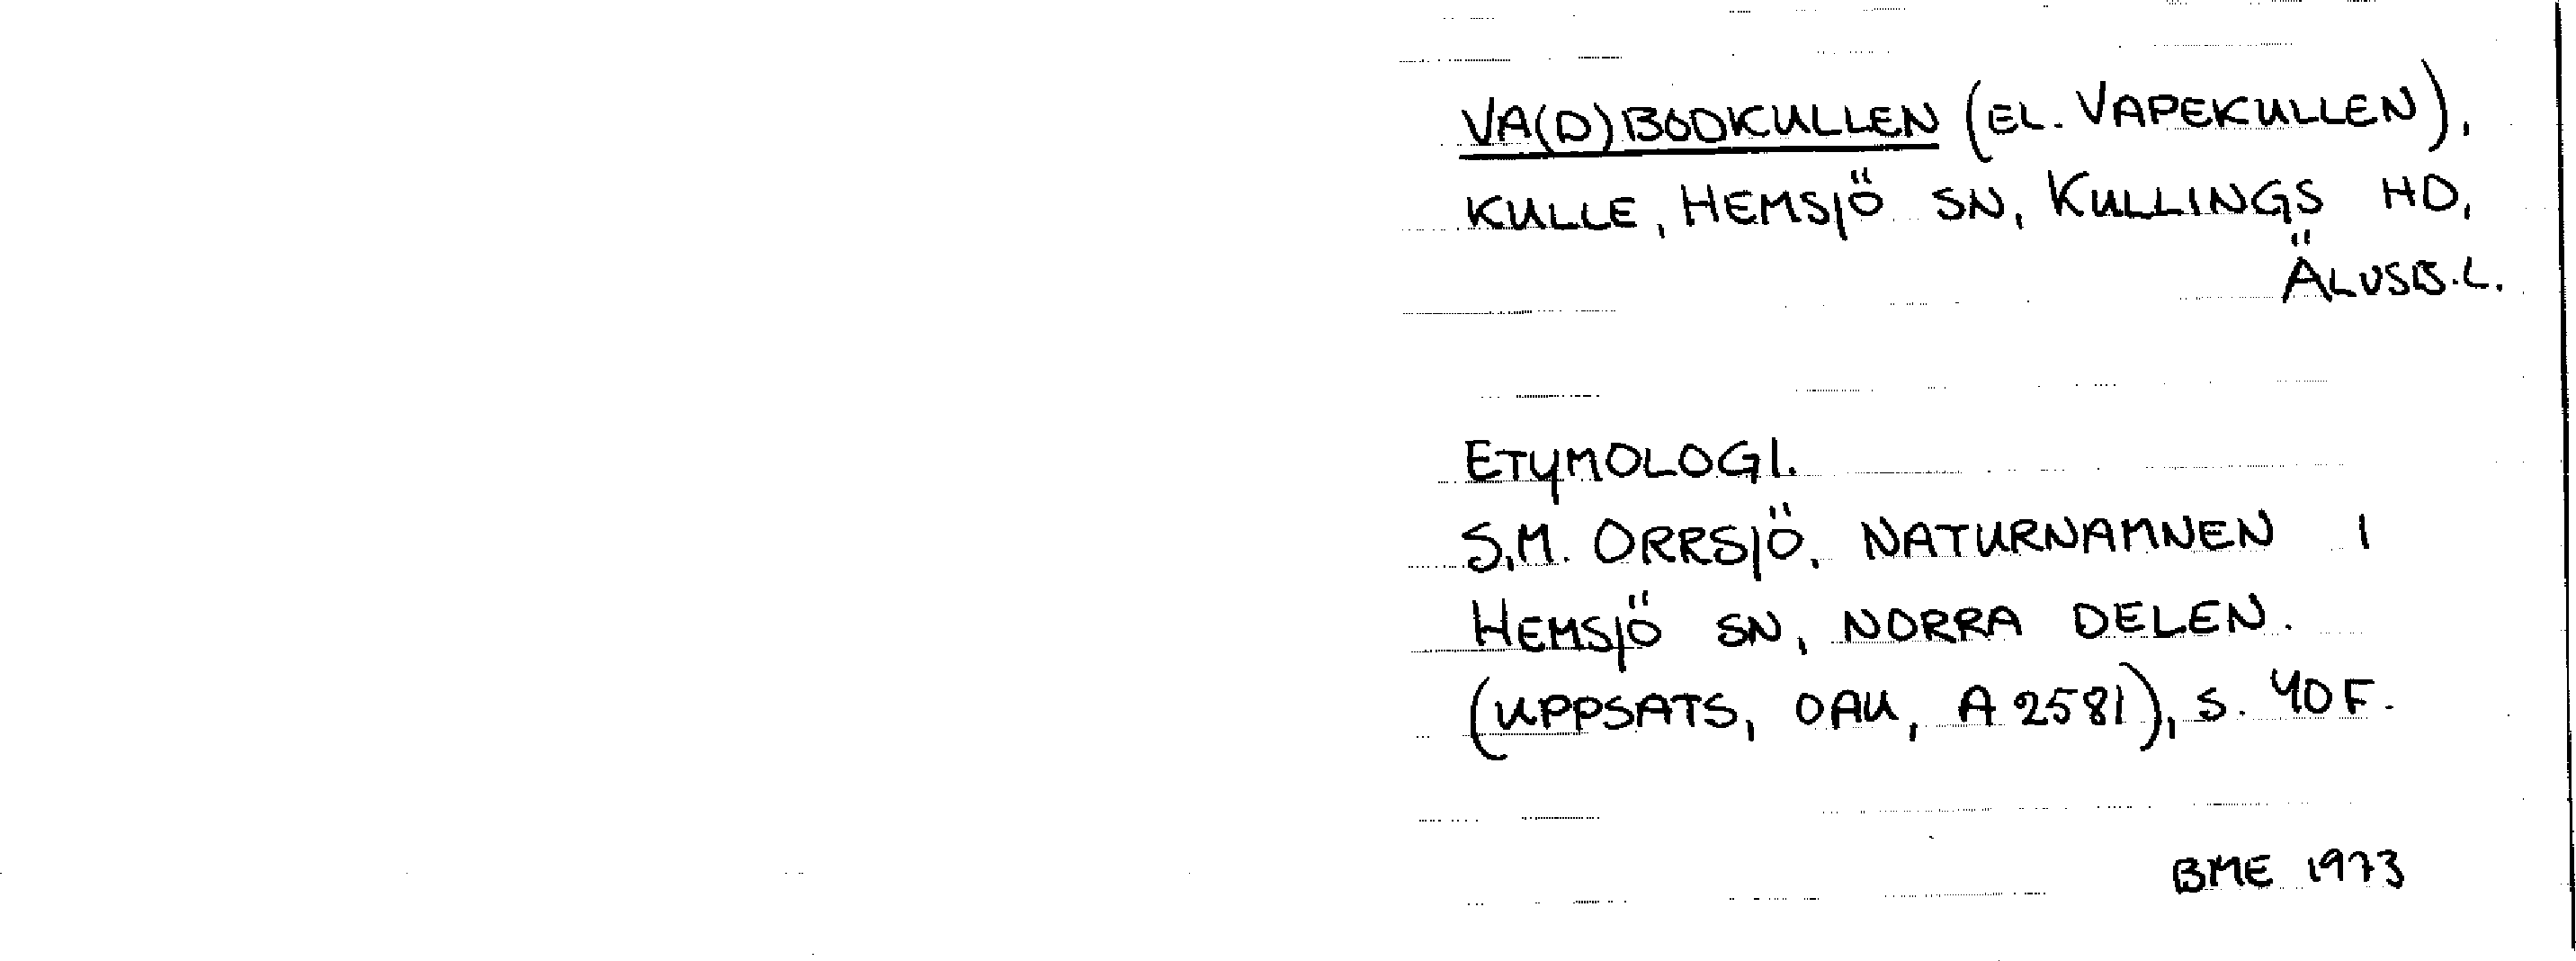 VA(D)BODKULLEN (EL. VAPEKULLEN),
KULLE, HEMSJÖ SN, KULLINGS HD,
ÄLVSB.L.
ETYMOLOGI.
S.M. ORRSJÖ, NATURNAMNEN I
HEMSJÖ SN, NORRA DELEN.
(UPPSATS, OAU, A 2581), S. 40 F.
BME 1973